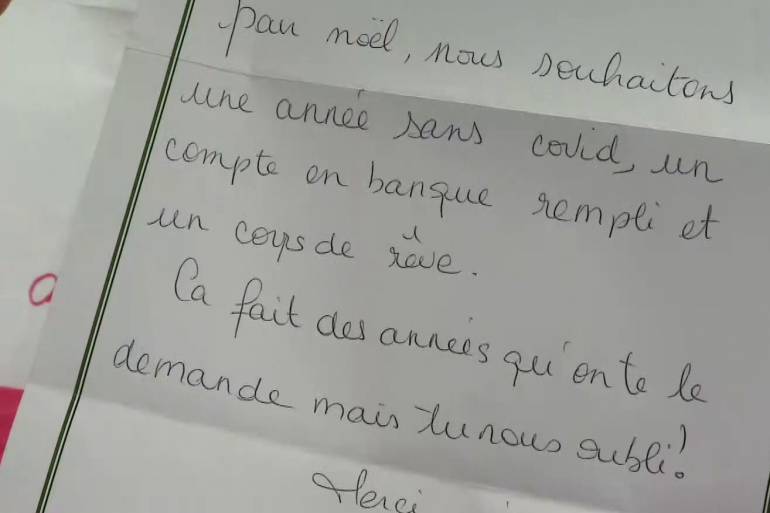 pau noël, nous souhaitons
une année sans covid, un
compte en banque rempli et
un corps de rêve.
Ca fait des années qu'on te le
demande mais tu nous oubli!
Merci